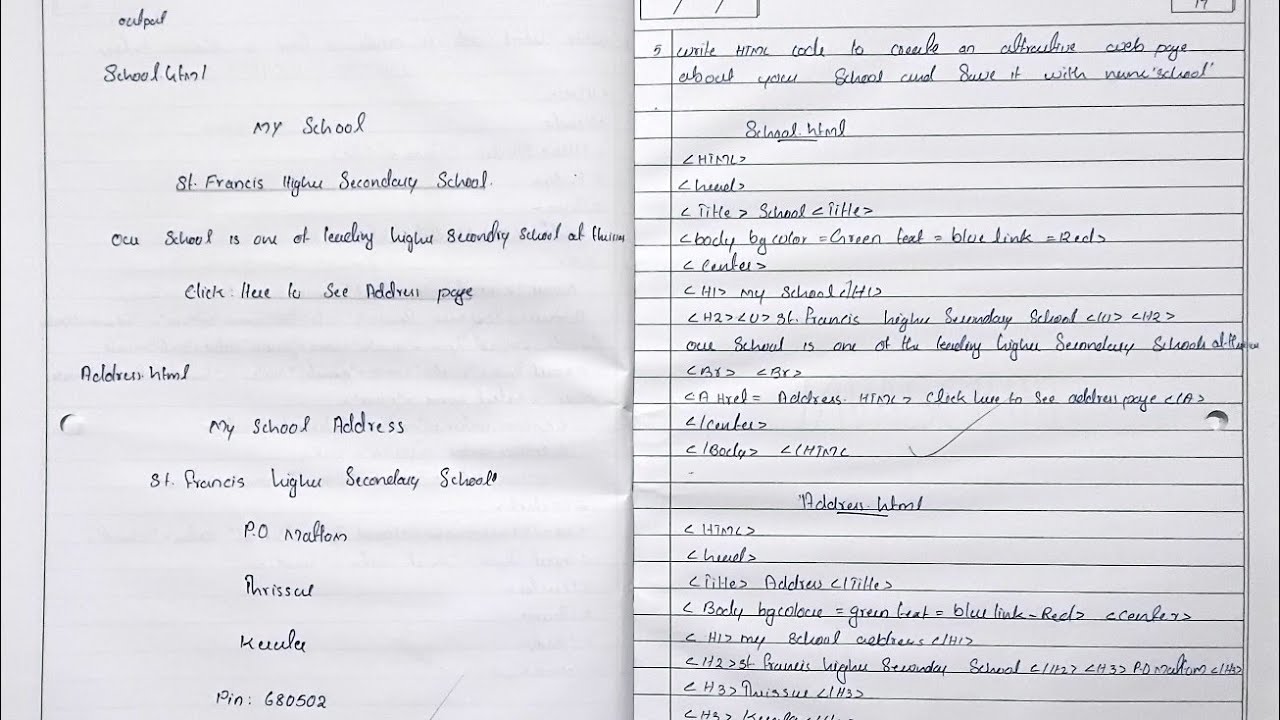 output
School.html
My School
St. Francis Higher Secondary School.
Our School is one of leading higher Secondry School at
Click: Here to See Address page
Address.html
My School Address
St. Francis higher Secondary School
P.O Mattom
Thrissur
Kerala
Pin: 680502
19
5 write HTML code to create an attractive web page
about your School and Save it with name 'school'
School.html
<HTML>
<head>
<Title> School <Title>
<body bgcolor = Green text = blue link = Red>
<Center>
<H1> My School </H1>
<H2> <U> St. Francis higher Secondary School </U> <H2>
our School is one of the leading higher Secondary Schools at
<Br> <Br>
<A Href = Address. HTML> Click here to See address page </A>
</Center>
</Body> </HTML
Address.html
<HTML>
<head>
<Title> Address </Title>
<Body bgcolour = green text = blue link - Red> <Center>
<H1> my School address </H1>
<H2> St Francis higher Seconday School </H2> <H3> P.O Mattom </H3>
<H3> Thrissur </H3>
<H3> Kerala